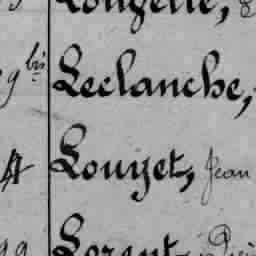 9 bis Leclanche,
4 Louyet, Jean
Lorent